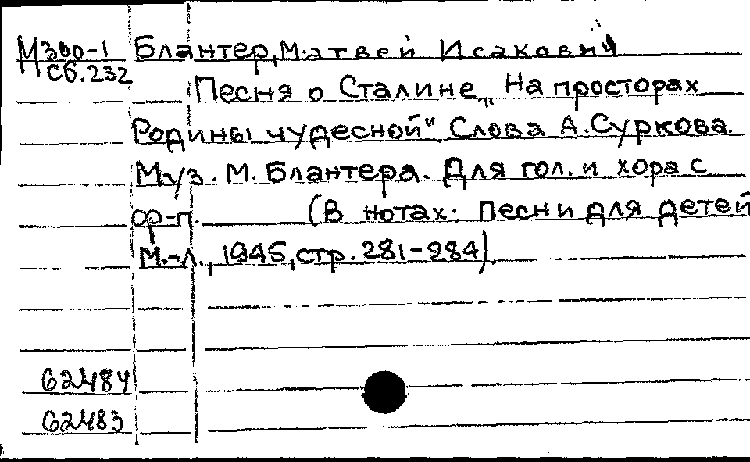 М300-1 Блантер, Матвей Исакович
Сб.232
Песня о Сталине „На просторах
Родины чудесной" Слова А. Суркова
Муз. М. Блантера. Для гол. и хора с
ор-п. (В нотах: Песни для детей
М.-Л., 1945, стр. 281-284).
62484
62483